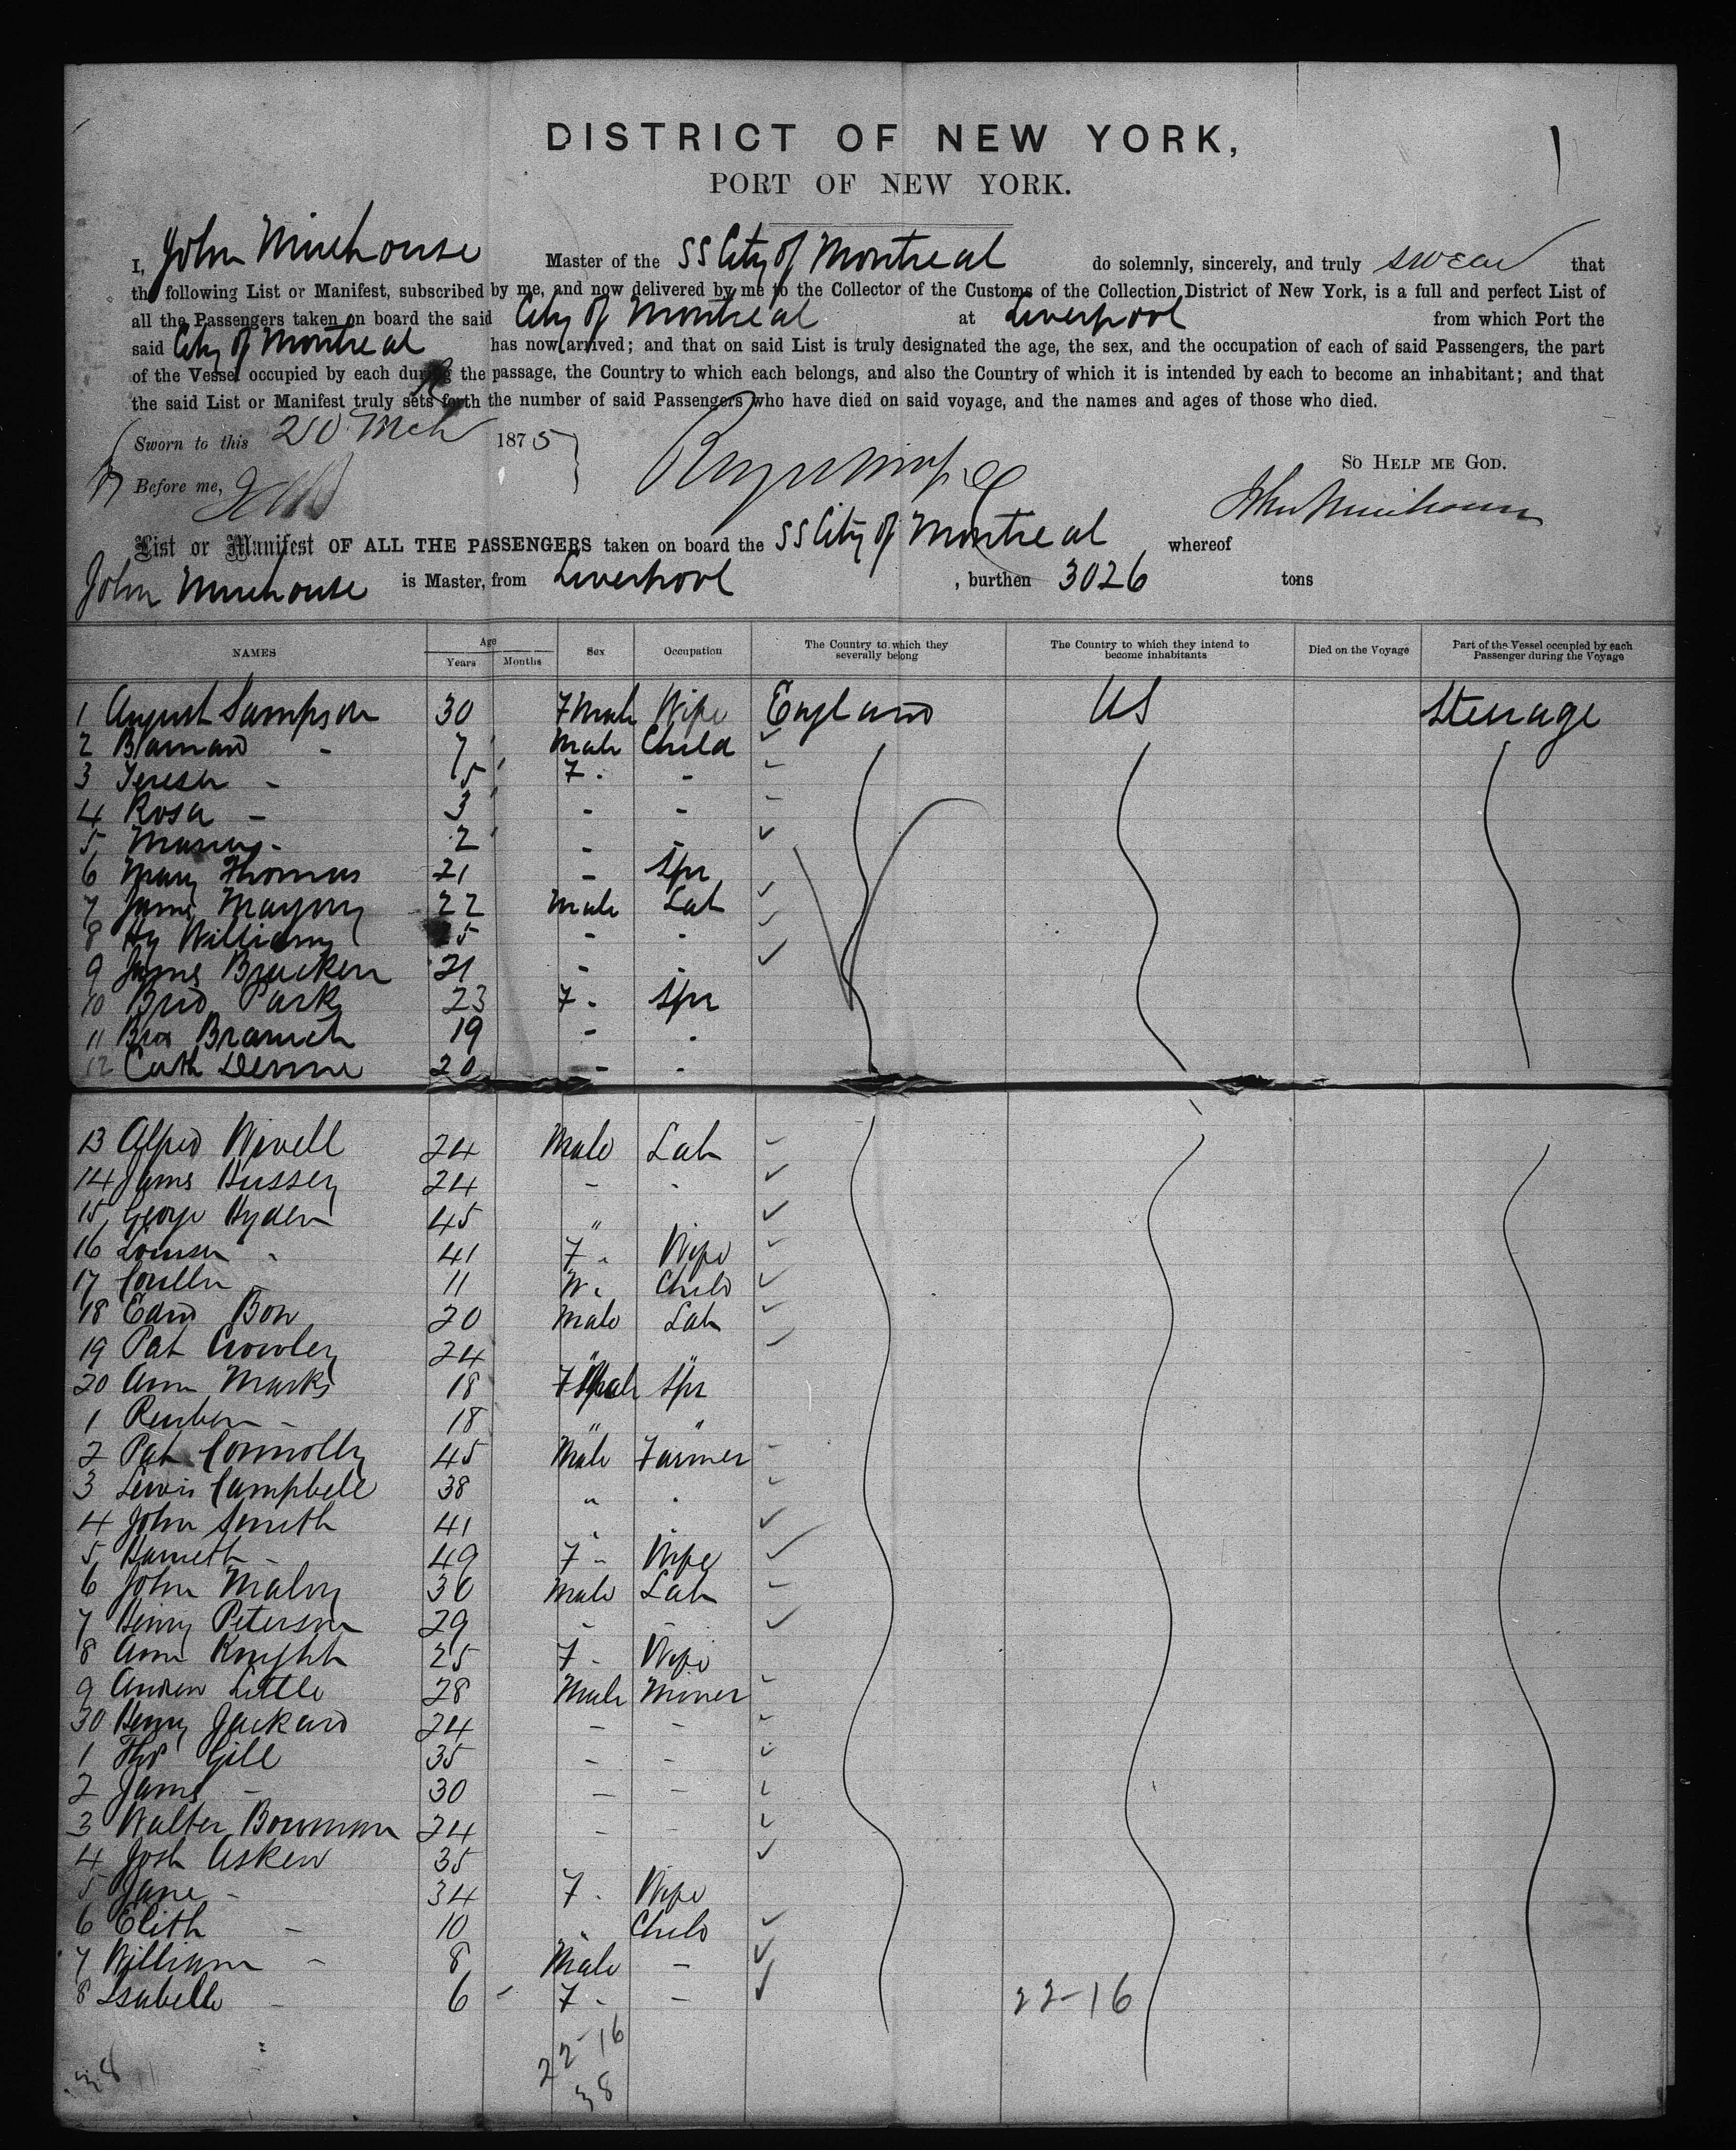 DISTRICT OF NEW YORK,
PORT OF NEW YORK.
I, John Mirehouse Master of the SS City of Montreal do solemnly, sincerely, and truly swear that
the following List or Manifest, subscribed by me, and now delivered by me to the Collector of the Customs of the Collection District of New York, is a full and perfect List of
all the Passengers taken on board the said City of Montreal at Liverpool from which Port the
said City of Montreal has now arrived; and that on said List is truly designated the age, the sex, and the occupation of each of said Passengers, the part
of the Vessel occupied by each during the passage, the Country to which each belongs, and also the Country of which it is intended by each to become an inhabitant; and that
the said List or Manifest truly sets forth the number of said Passengers who have died on said voyage, and the names and ages of those who died.
Sworn to this 20 Mch 1875
So Help me God.
Before me,
John Mirehouse
List or Manifest OF ALL THE PASSENGERS taken on board the SS City of Montreal whereof
John Mirehouse is Master, from Liverpool , burthen 3026 tons
NAMES Age Years Months Sex Occupation The Country to which they severally belong The Country to which they intend to become inhabitants Died on the Voyage Part of the Vessel occupied by each Passenger during the Voyage
1 August Sampson 30 Fmale Wife England US Steerage
2 Barnard - 7 Male Child
3 Teresa - 5 F - -
4 Rosa - 3 - -
5 - 2 - -
6 Mary Thomas 21 - Spr
7 James 22 Male Lab
8 Hy Williams 25 - -
9 James Bracken 21 - -
10 Brid Park 23 F - Spr
11 19 - -
12 Cath 20 - -
13 Alfred Wivell 24 Male Lab
14 James Bussey 24 - -
15 George Hyden 45 "
16 Louisa - 41 F - Wife
17 - 11 Child
18 Edwd Bow 20 Male Lab
19 Pat Crowley 24 " "
20 Ann Marks 18 Fmale Spr
1 Reuben - 18 " "
2 Pat Connolly 45 Male Farmer
3 Lewis Campbell 38 " -
4 John Smith 41 -
5 - 49 F - Wife
6 John Maloy 30 Male Lab
7 Henry Peterson 29 - -
8 Ann Knight 25 F - Wife
9 Andrew Little 28 Male Miner
30 Henry Jackard 24 - -
1 Thos Gill 35 - -
2 James - 30 - -
3 Walter Bowman 24 - -
4 Josh Askew 35
5 Jane - 34 F - Wife
6 Elith - 10 - Child
7 William - 8 Male -
8 Isabella - 6 - F - - 22-16
22-16
38 38